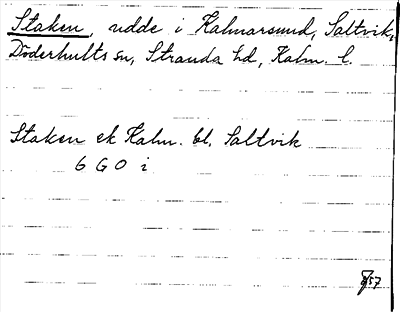 Staken, udde i Kalmarsund, Saltvik,
Döderhults sn, Stranda hd, Kalm. l.
Staken ek Kalm. bl. Saltvik
6 G O i